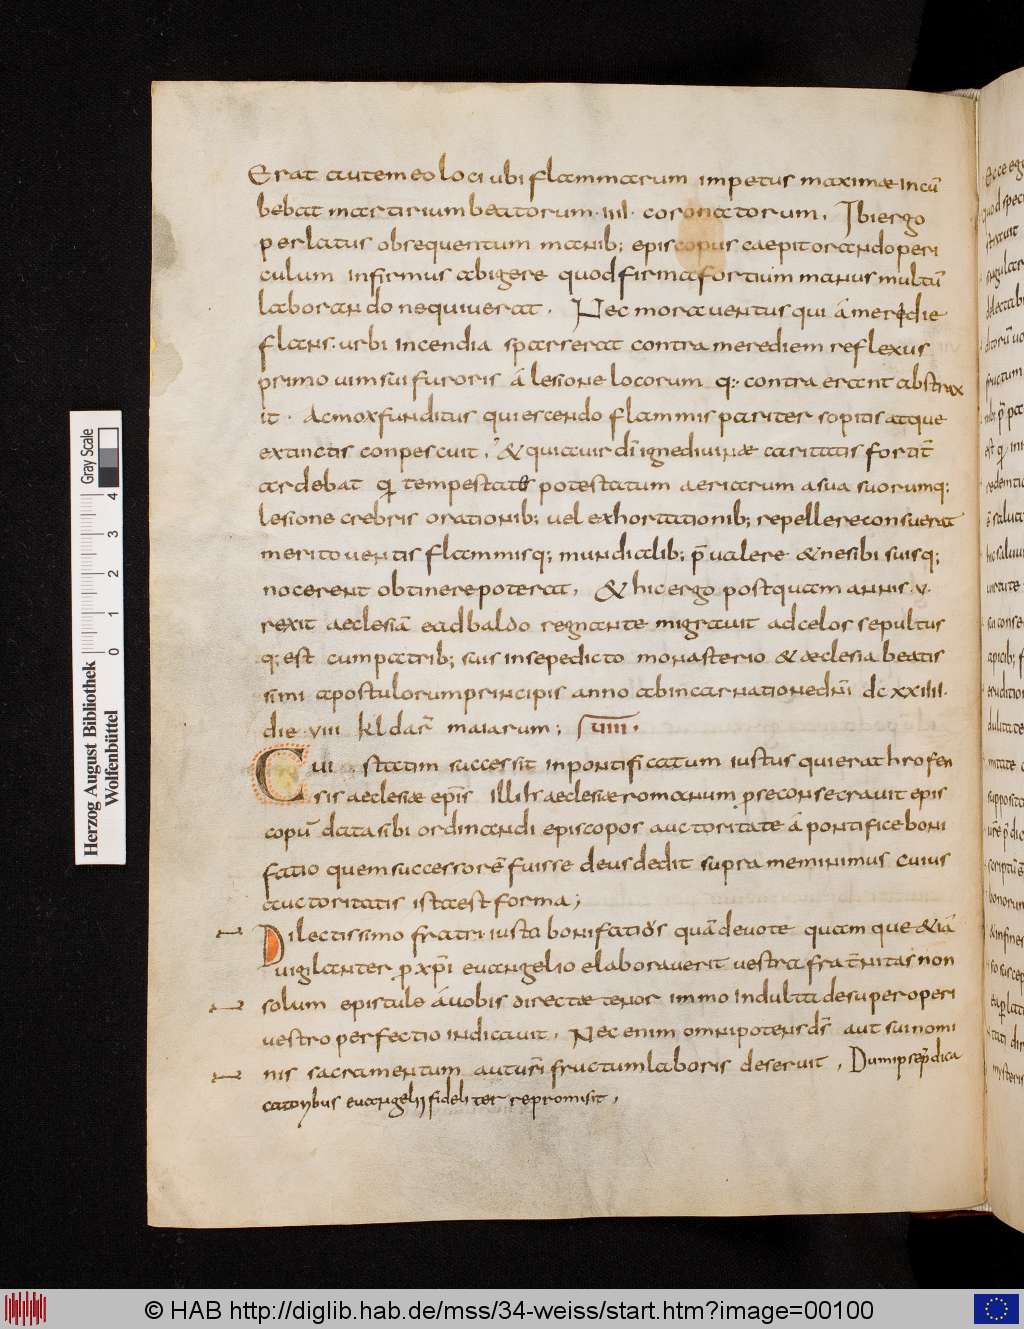 Erat autem eo loci ubi flammarum impetus maxime incū
bebat martirium beatorum · IIII · coronatorum. Ibi ergo
perlatus obsequentum manib; episcopus caepit orando peri
culum infirmus abigere quod firma fortium manus multū
laborando nequiverat. Nec mora ventus qui á meridie
flans · urbi incendia sparserat contra merediem reflexus
primo vim sui furoris á lesione locorum q: contra erant abstrax
it · ac mox funditus quiescendo flammis pariter sopitis atque
extinctis conpescuit. & quia vir dī igne divinae caritatis fortit̄
ardebat qi tempestates potestatum aeriarum a sua suorumq;
lesione crebris orationib; vel exhortationib; repellere consuerat
merito ventis flammisq; mundialib; p̄valere & ne sibi suisq;
nocerent obtinere poterat. & hic ergo postquam annis · v ·
rexit aeclesiā eadbaldo regnante migravit ad celos sepultus
q; est cum patrib; suis in sepe dicto monasterio & aeclesia beatis
simi apostulorum principis anno ab incarnatione dn̄i dcxxiiii ·
die · viii kldar̄ maiarum; S IIII ·
Cui · statim successit in pontificatum iustus qui erat hrofen
sis aeclesiae ep̄is illi hs aeclesiae romanum p se consecravit epis
copū data sibi ordinandi episcopos auctoritate á pontifice boni
fatio quem successorē fuisse deusdedit supra meminimus cuius
auctoritatis ista est forma;
Dilectissimo fratri · iusto bonifatius quā devote quamque & iā
vigilanter p xp̄i euangelio elaboraverit vestra frat̄nitas non
solum epistule á vobis directae tenor immo indulta desuper operi
vestro perfectio indicavit. Nec enim omnipotens ds̄ aut sui nomi
nis sacramentum aut uri fructum laboris deseruit. Dum ipse p̄dica
catoribus euangelii fideliter repromisit.
Herzog August Bibliothek
Wolfenbüttel
Gray Scale
0 1 2 3 4
© HAB http://diglib.hab.de/mss/34-weiss/start.htm?image=00100